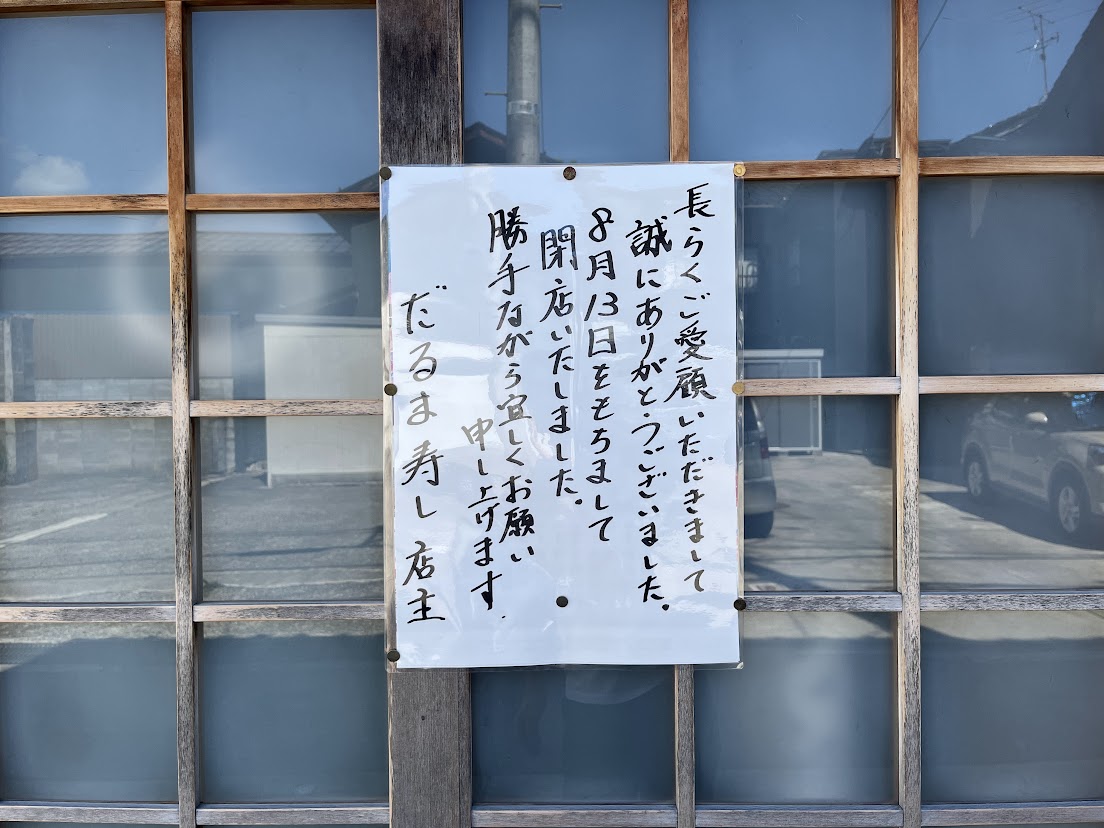 長らくご愛顧いただきまして
誠にありがとうございました。
8月13日をもちまして
閉店いたしました。
勝手ながら宜しくお願い
申し上げます.
だるま寿し店主